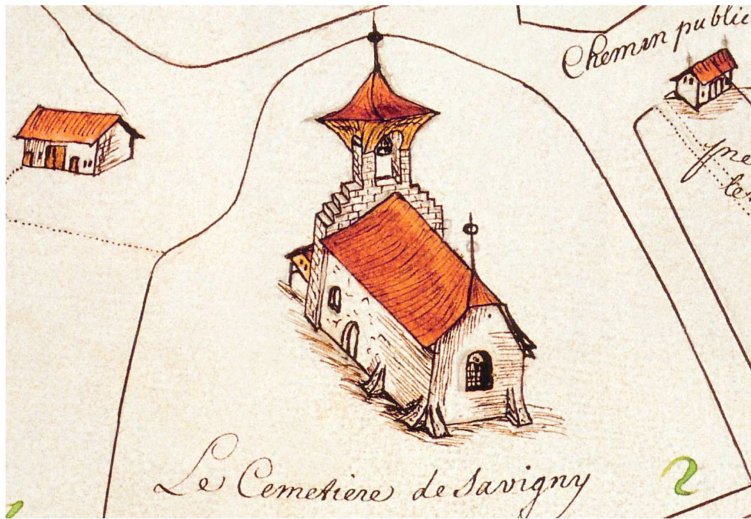 Chemin public
Le Cemetière de Savigny
2